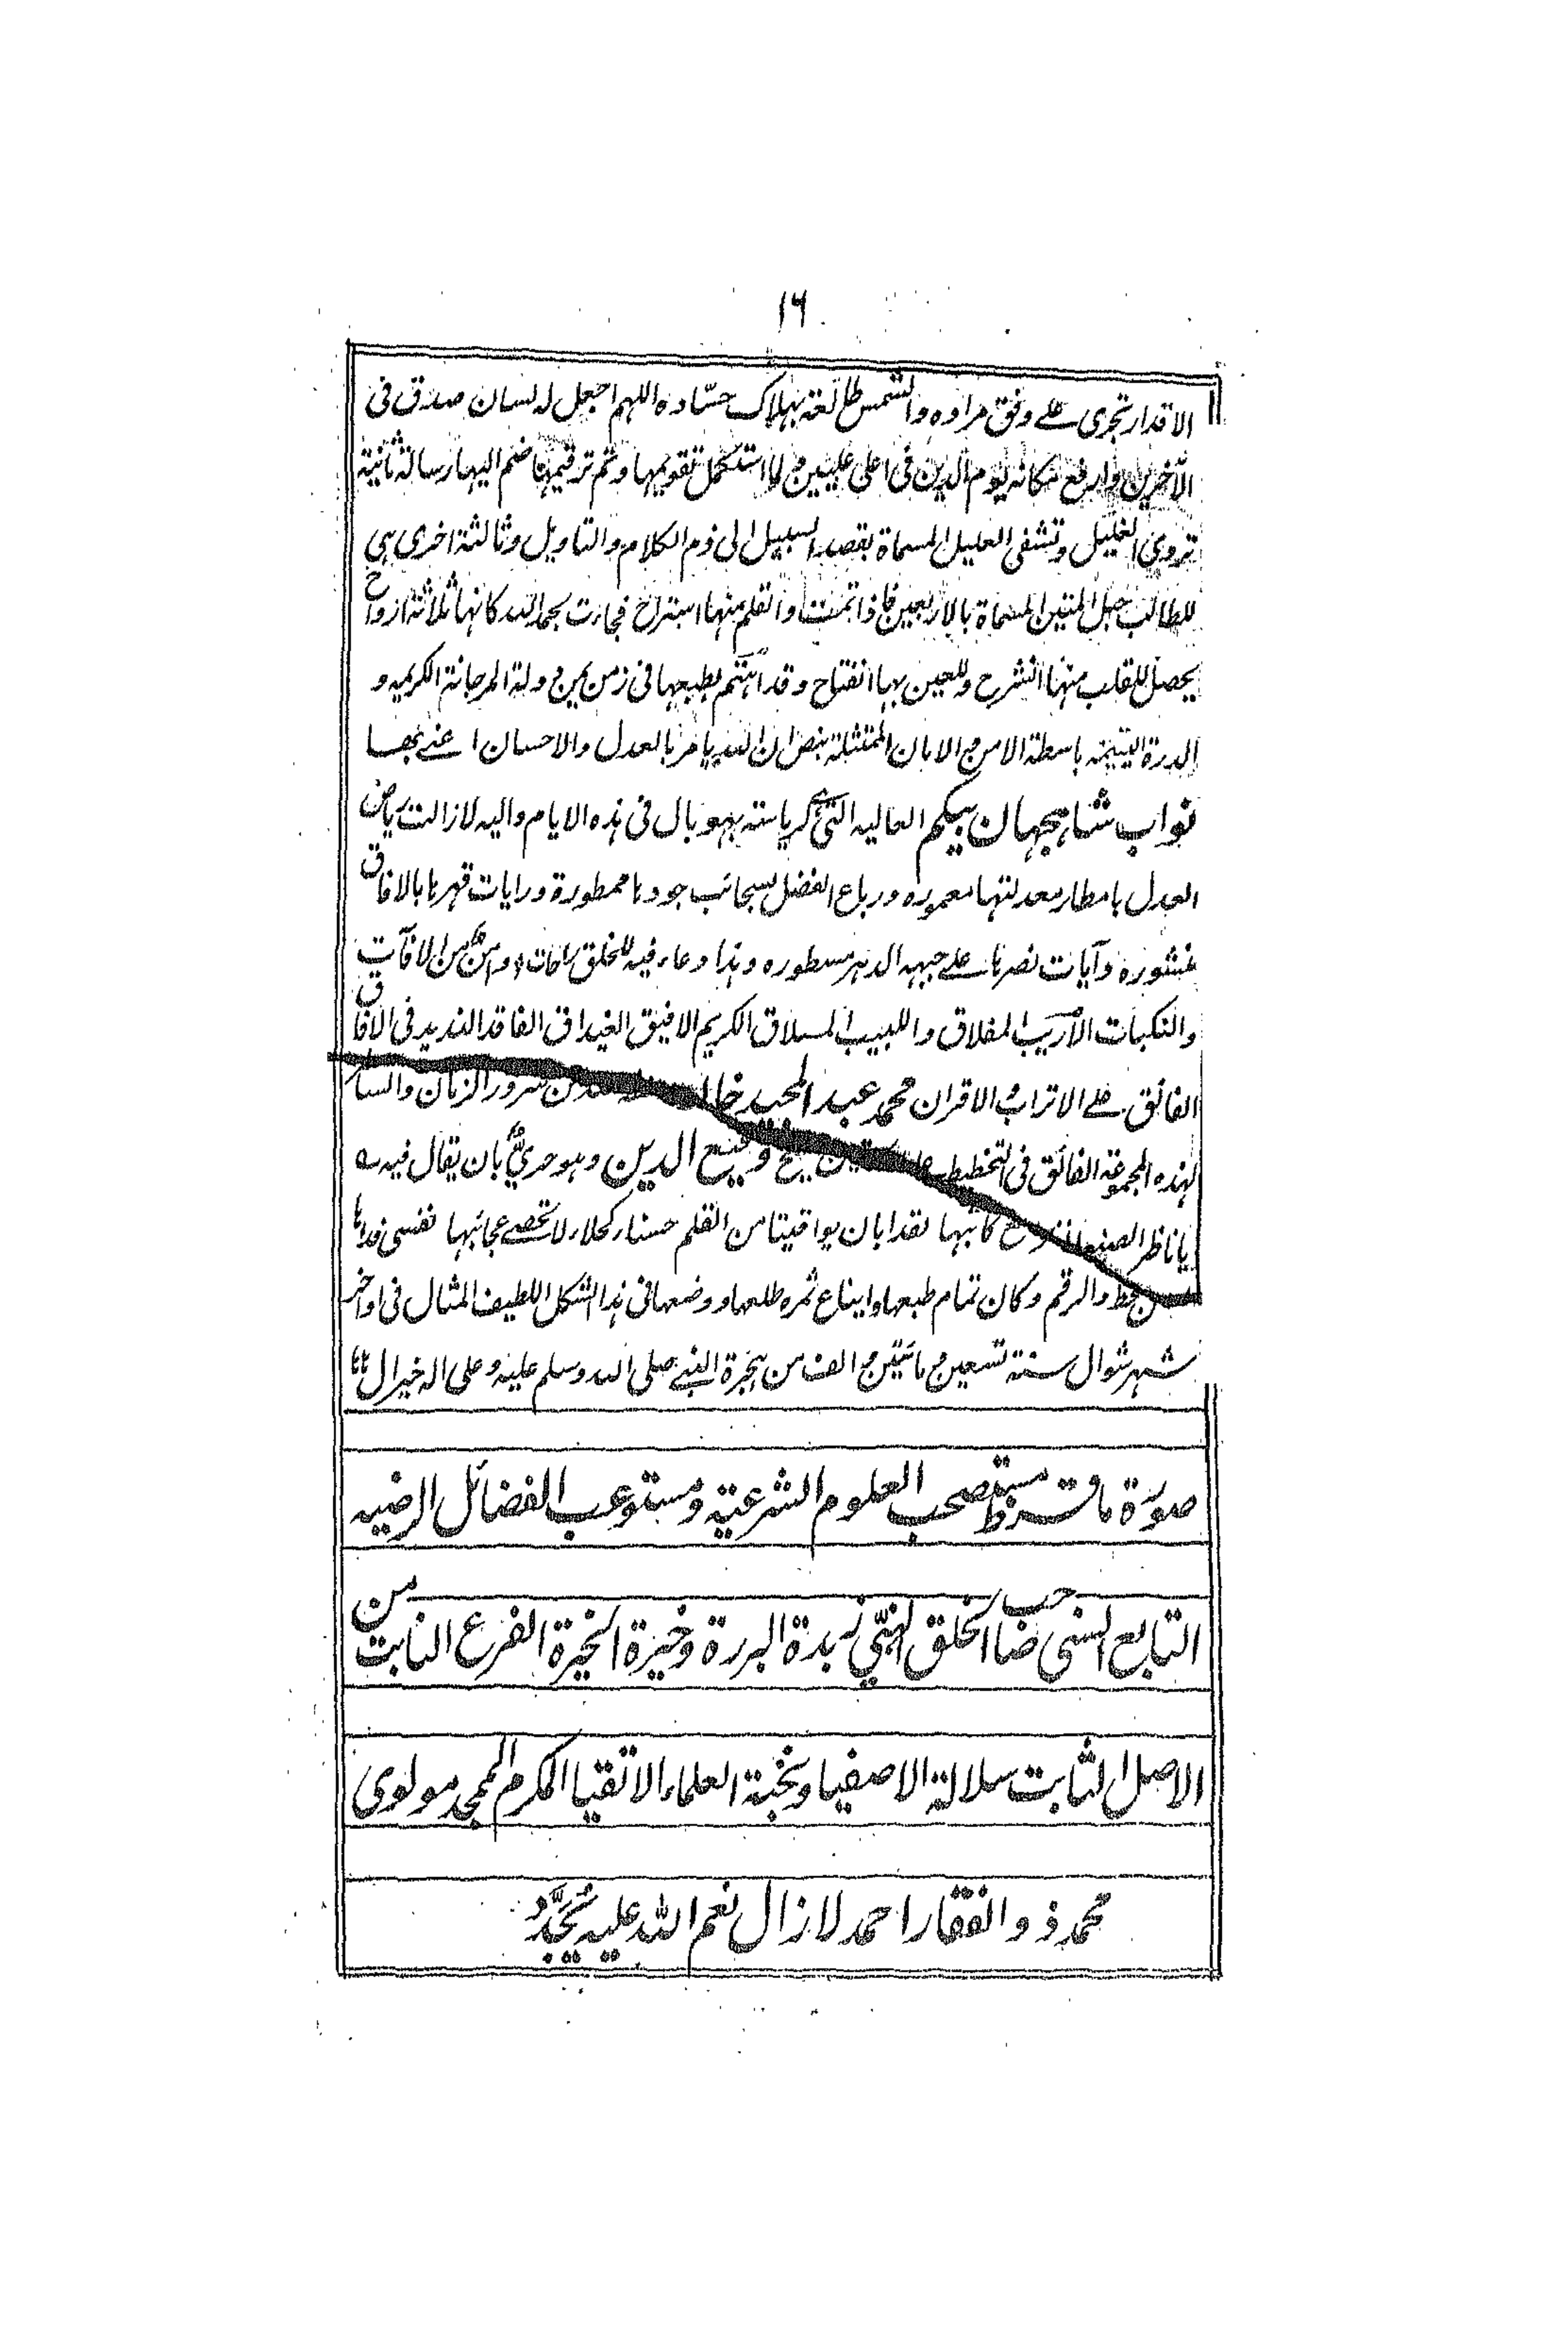 ١٦
الاقدار تجرى على وفق مراده والشمس طالعة بهلاك حسّاده اللهم اجعل له لسان صدق فى
الآخرين وارفع مكانه يوم الدين فى اعلى عليين و لما استكمل تقويمها وتم ترقيمها ضم اليها رسالة ثانية
تروى الغليل وتشفى العليل المسماة بقصد السبيل الى ذم الكلام والتاويل وثالثة اخرى هى
للطالب حبل المتين المسماة بالاربعين فاذا تمت والقلم منها استراح فجاءت بحمد الله كانها ثلاثة ازواح
يحصل للقلب منها انشرح وللعين بها انفتاح وقد اهتم بطبعها فى زمن يمن دولة المرجانة الكريمه و
الدرة اليتيمه باسطة الامن و الامان الممتثلة بنص ان الله يامر بالعدل والاحسان اعنى بها
نواب شاهجهان بيكم العاليه التى هى كرياسته بهوبال فى هذه الايام واليه لازالت رياض
العدل بامطار معدلتها معموره ورباع الفضل بسحائب جودها ممطورة ورايات قهرها بالافاق
منشوره وآيات نصرها على جبهه الدهر مسطوره وهذا دعاء فيه للخلق راحات وامن من الافات
والنكبات الأريب المفلاق واللبيب المسلاق الكريم الافيق الغيداق الفاقد النديد فى الافاق
الفائق على الاتراب و الاقران محمد عبد المجيد خان سرور الزمان والسا
لهذه المجموعة الفائق فى التخطيط شيخ وقيع الدين وهو حريٌّ بان يقال فيه
يا ناظر الصنيعا كاتبها لقد ابان يواقيتا من القلم حسناء كحلاء لا تحصى عجائبها نفسى فداها
خط والرقم وكان تمام طبعها وايناع ثمره طلعها ووضعها فى هذا الشكل اللطيف المثال فى اواخر
شهر شوال سنة تسعين و مائتين و الف من هجرة النبى صلى الله وسلم عليه وعلى اله خير ال
صورة ما قرظ مستصحب العلوم الشرعية ومستوعب الفضائل الرضيه
التابع السنى صاحب الخلق البهىّ زبدة البررة وخيرة الخيرة الفرع النابت من
الاصل الثابت سلالة الاصفيا ونخبة العلماء الاتقيا المكرم الممجد مولوى
محمد ذو الفقار احمد لا زال نعم الله عليه تُجَدَّدُ